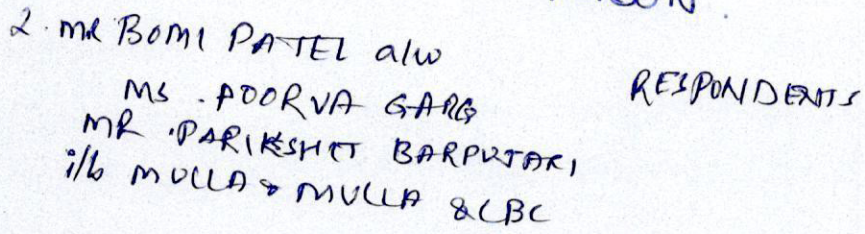 2. MR BOMI PATEL a/w
MS. POORVA GARG
RESPONDENTS
MR. PARIKSHIT BARPUJARI
i/b MULLA & MULLA & CBC